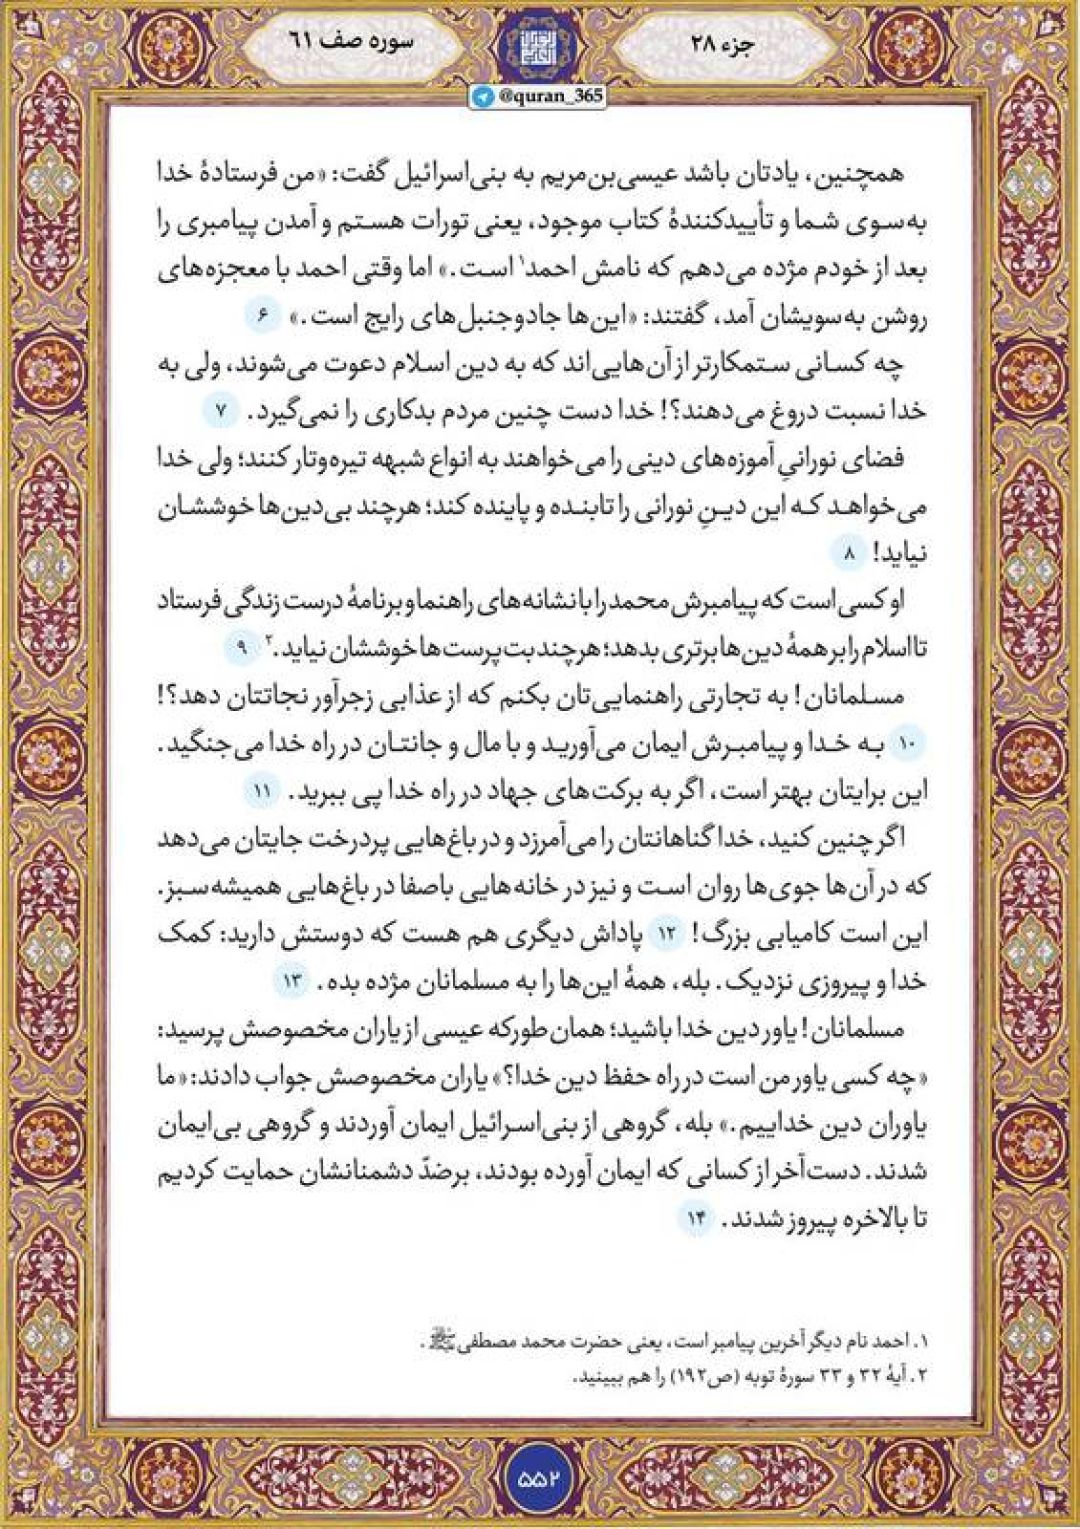 جزء ۲۸
سوره صف ۶۱
@quran_365
همچنین، یادتان باشد عیسی‌بن‌مریم به بنی‌اسرائیل گفت: «من فرستادهٔ خدا
به‌سوی شما و تأییدکنندهٔ کتاب موجود، یعنی تورات هستم و آمدن پیامبری را
بعد از خودم مژده می‌دهم که نامش احمد۱ است.» اما وقتی احمد با معجزه‌های
روشن به‌سویشان آمد، گفتند: «این‌ها جادوجنبل‌های رایج است.» ۶
چه کسانی ستمکارتر از آن‌هایی‌اند که به دین اسلام دعوت می‌شوند، ولی به
خدا نسبت دروغ می‌دهند؟! خدا دست چنین مردم بدکاری را نمی‌گیرد. ۷
فضای نورانیِ آموزه‌های دینی را می‌خواهند به انواع شبهه تیره‌وتار کنند؛ ولی خدا
می‌خواهد که این دینِ نورانی را تابنده و پاینده کند؛ هرچند بی‌دین‌ها خوششان
نیاید! ۸
او کسی است که پیامبرش محمد را با نشانه‌های راهنما و برنامهٔ درست زندگی فرستاد
تا اسلام را بر همهٔ دین‌ها برتری بدهد؛ هرچند بت‌پرست‌ها خوششان نیاید.۲ ۹
مسلمانان! به تجارتی راهنمایی‌تان بکنم که از عذابی زجرآور نجاتتان دهد؟!
۱۰ به خدا و پیامبرش ایمان می‌آورید و با مال و جانتان در راه خدا می‌جنگید.
این برایتان بهتر است، اگر به برکت‌های جهاد در راه خدا پی ببرید. ۱۱
اگر چنین کنید، خدا گناهانتان را می‌آمرزد و در باغ‌هایی پردرخت جایتان می‌دهد
که در آن‌ها جوی‌ها روان است و نیز در خانه‌هایی باصفا در باغ‌هایی همیشه‌سبز.
این است کامیابی بزرگ! ۱۲ پاداش دیگری هم هست که دوستش دارید: کمک
خدا و پیروزی نزدیک. بله، همهٔ این‌ها را به مسلمانان مژده بده. ۱۳
مسلمانان! یاور دین خدا باشید؛ همان‌طورکه عیسی از یاران مخصوصش پرسید:
«چه کسی یاور من است در راه حفظ دین خدا؟» یاران مخصوصش جواب دادند: «ما
یاوران دین خداییم.» بله، گروهی از بنی‌اسرائیل ایمان آوردند و گروهی بی‌ایمان
شدند. دست‌آخر از کسانی که ایمان آورده بودند، برضدّ دشمنانشان حمایت کردیم
تا بالاخره پیروز شدند. ۱۴
۱. احمد نام دیگر آخرین پیامبر است، یعنی حضرت محمد مصطفی ﷺ.
۲. آیهٔ ۳۲ و ۳۳ سورهٔ توبه (ص۱۹۲) را هم ببینید.
۵۵۲